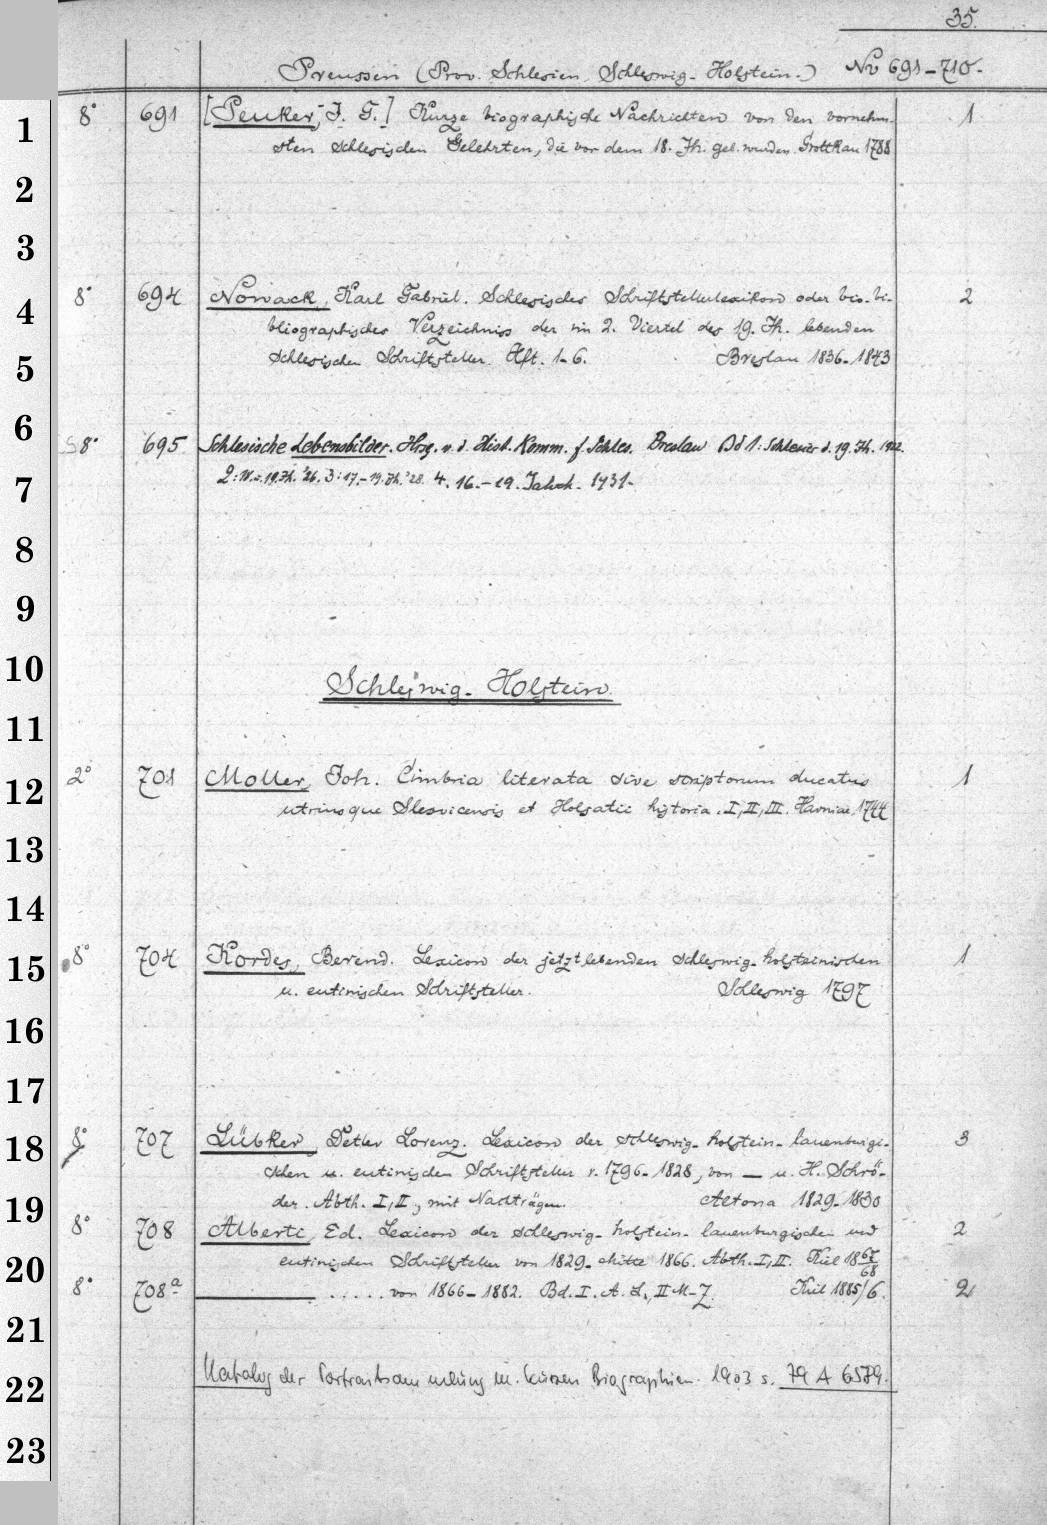 35.
Preussen (Prov. Schlesien, Schleswig-Holstein.) No 691-710.
1 8° 691 [Peuker, J. G.] Kurze biographische Nachrichten von den vornehm- 1
sten schlesischen Gelehrten, die vor dem 18. Jh. geb. wurden. Grottkau 1788
2
3
4 8° 694 Nowack, Karl Gabriel. Schlesisches Schriftstellerlexikon oder bio-bi- 2
bliographisches Verzeichniss der im 2. Viertel des 19. Jh. lebenden
5 schlesischen Schriftsteller. Hft. 1-6. Breslau 1836-1843
6 8° 695 Schlesische Lebensbilder. Hrsg. v. d. Hist. Komm. f. Schles. Breslau Bd 1: Schlesier d. 19. Jh. 1922.
7 2: 18. u. 19. Jh. '26. 3: 17.-19. Jh. '28. 4. 16.-19. Jahrh. 1931-
8
9
10 Schleswig-Holstein.
11
12 2° 701 Moller, Joh. Cimbria literata sive scriptorum ducatus 1
utriusque Slesvicensis et Holsatici historia. I, II, III. Havniae, 1744
13
14
15 8° 704 Kordes, Berend. Lexicon der jetztlebenden schleswig-holsteinischen 1
u. eutinischen Schriftsteller. Schleswig 1797
16
17
18 8° 707 Lübker, Detlev Lorenz. Lexicon der schleswig-holstein-lauenburgi- 3
schen u. eutinischen Schriftsteller v. 1796-1828, von — u. H. Schrö-
19 der. Abth. I, II, mit Nachträgen. Altona 1829-1830
8° 708 Alberti, Ed. Lexicon der schleswig-holstein-lauenburgischen und 2
20 eutinischen Schriftsteller von 1829-Mitte 1866. Abth. I, II. Kiel 1867/68
8° 708a ——— ..... von 1866-1882. Bd. I. A-L, II M-Z. Kiel 1885/6. 2
21
22 Katalog der Portraitsammlung m. kurzen Biographien. 1903 s. 79 A 6579.
23